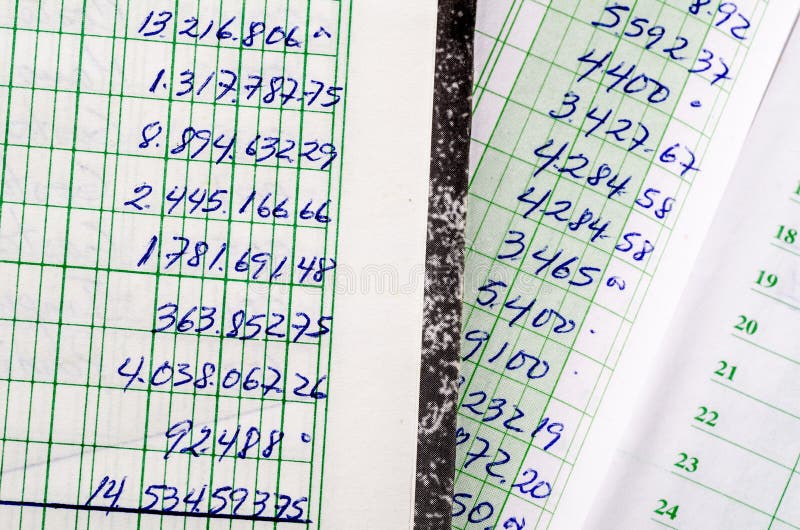 13 216.806.00
1.317.787.75
8.894.632.29
2.445.166.66
1.781.691.48
363.852.75
4.038.067.26
92.488.0
14.534.593.75
8.92
55 92 37
4400.
3.427.67
4.284.58
4284.58
3.465 00
5.400.
9100.
232.19
972.20
50.00
18
19
20
21
22
23
24
dreamstime